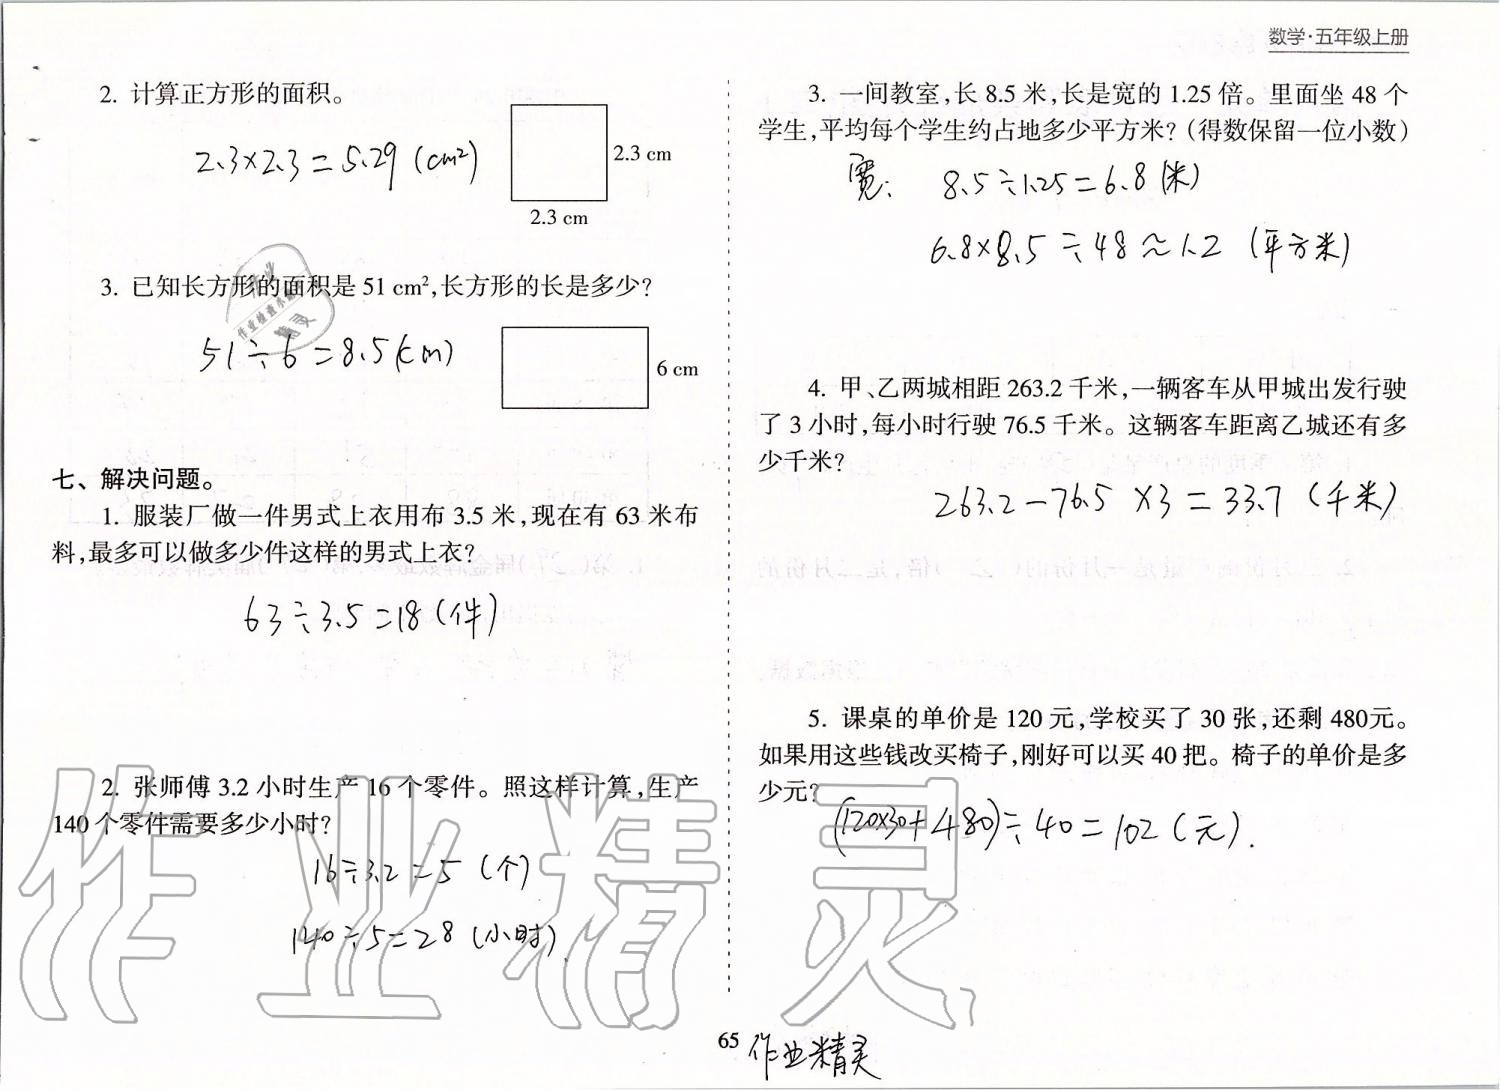 数学·五年级上册
2. 计算正方形的面积。
2.3×2.3=5.29(cm²)
2.3 cm
2.3 cm
3. 已知长方形的面积是 51 cm²,长方形的长是多少?
51÷6=8.5(cm)
6 cm
七、解决问题。
1. 服装厂做一件男式上衣用布 3.5 米,现在有 63 米布
料,最多可以做多少件这样的男式上衣?
63÷3.5=18(件)
2. 张师傅 3.2 小时生产 16 个零件。照这样计算,生产
140 个零件需要多少小时?
16÷3.2=5 (个)
140÷5=28 (小时).
3. 一间教室,长 8.5 米,长是宽的 1.25 倍。里面坐 48 个
学生,平均每个学生约占地多少平方米?(得数保留一位小数)
宽: 8.5÷1.25=6.8(米)
6.8×8.5÷48≈1.2 (平方米)
4. 甲、乙两城相距 263.2 千米,一辆客车从甲城出发行驶
了 3 小时,每小时行驶 76.5 千米。这辆客车距离乙城还有多
少千米?
263.2-76.5×3=33.7(千米)
5. 课桌的单价是 120 元,学校买了 30 张,还剩 480元。
如果用这些钱改买椅子,刚好可以买 40 把。椅子的单价是多
少元?
(120×30+480)÷40=102(元).
65
作业精灵
作业精灵
作业
作业检查小助手
精灵